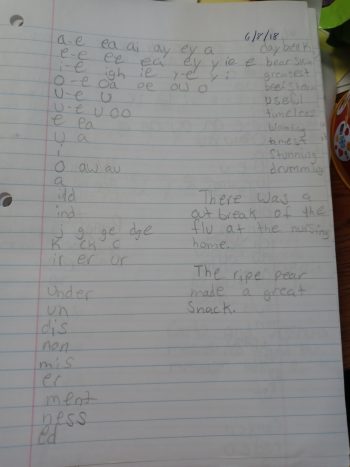 6/8/18
a-e ea ai ay ey a
e-e ee ea ey y ie e
i-e igh ie y-e y i
o-e oa oe ow o
u-e u
u-e u oo
e ea
u a
i
o aw au
a
ild
ind
j g ge dge
k ck c
ir er ur
under
un
dis
non
mis
er
ment
ness
ed
day break
bear skin
greatest
beef steak
useful
timeless
stunning
drumming
There was a
out break of the
flu at the nursing
home.
The ripe pear
made a great
snack.